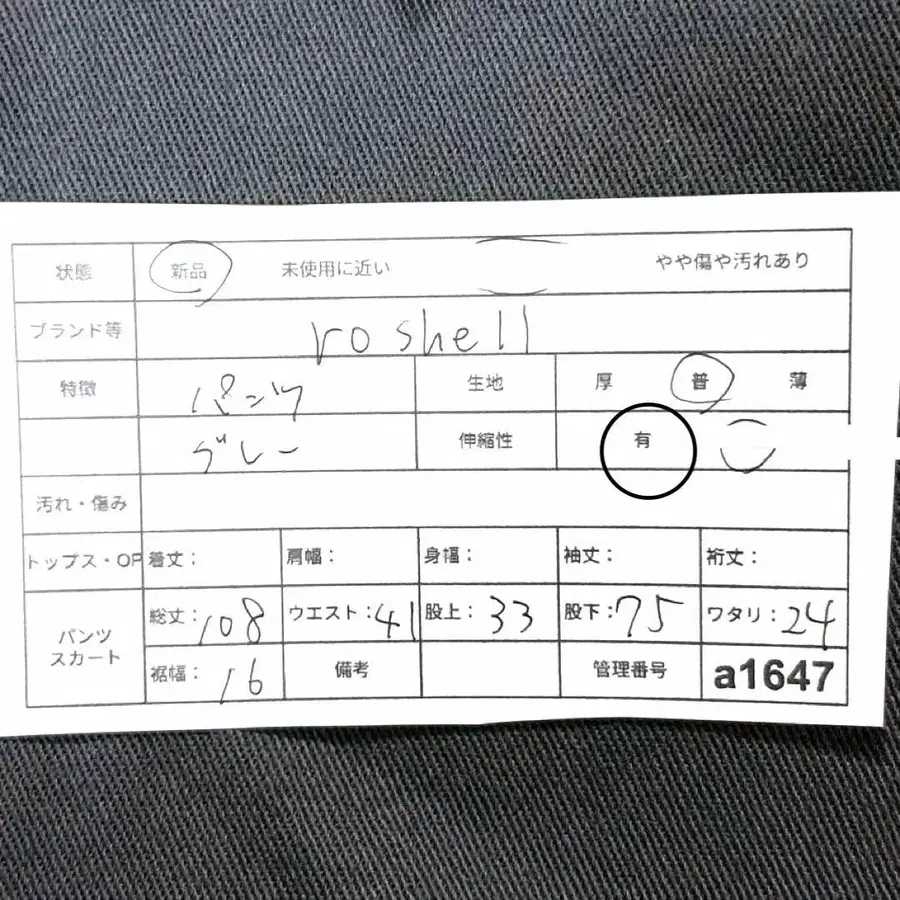 状態 新品 未使用に近い やや傷や汚れあり
ブランド等 roshell
特徴 パンツ 生地 厚 普 薄
グレー 伸縮性 有
汚れ・傷み
トップス・OP 着丈： 肩幅： 身幅： 袖丈： 裄丈：
パンツ スカート 総丈：108 ウエスト：41 股上：33 股下：75 ワタリ：24
裾幅：16 備考 管理番号 a1647